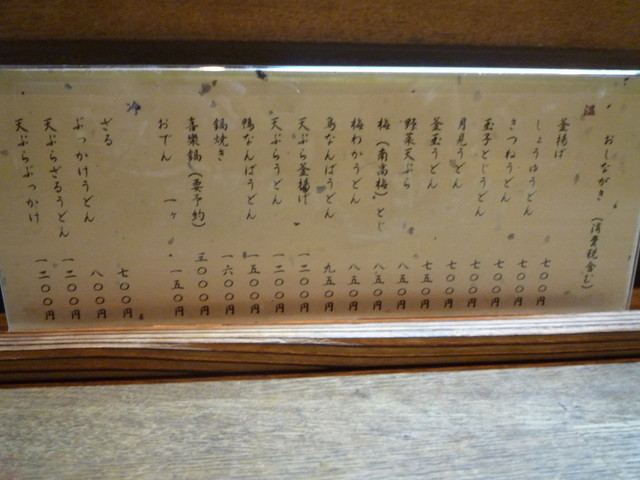 おしながき（消費税含む）
温
釜揚げ 七〇〇円
しょうゆうどん 七〇〇円
きつねうどん 七〇〇円
玉子とじうどん 七〇〇円
月見うどん 七〇〇円
釜玉うどん 七五〇円
野菜天ぷら 八〇〇円
梅（南高梅）とじ 八五〇円
梅わかうどん 八五〇円
鳥なんばうどん 九五〇円
天ぷら釜揚げ 一二〇〇円
天ぷらうどん 一二〇〇円
鴨なんばうどん 一五〇〇円
鍋焼き 一六〇〇円
喜樂鍋（要予約） 三〇〇〇円
おでん 一ヶ 一五〇円
冷
ざる 七〇〇円
ぶっかけうどん 八〇〇円
天ぷらざるうどん 一二〇〇円
天ぷらぶっかけ 一二〇〇円